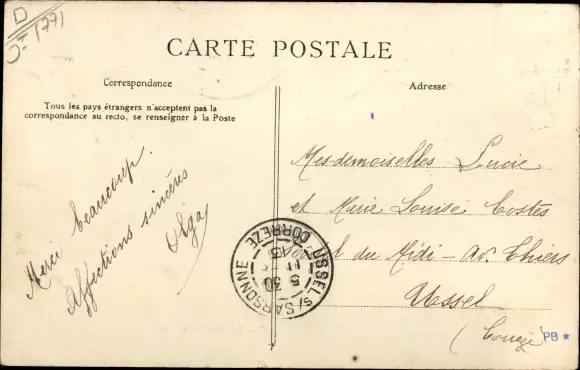 D
Jt (77)
CARTE POSTALE
Correspondance
Adresse
Tous les pays étrangers n'acceptent pas la
correspondance au recto, se renseigner à la Poste
Merci beaucoup.
Affections sincères
Olga
Mesdemoiselles Lucie
et Marie Louise Costes
du Midi - Av. Thiers
Ussel
(Corrèze
USSEL S/ SARSONNE
CORREZE
5 30
PB ★